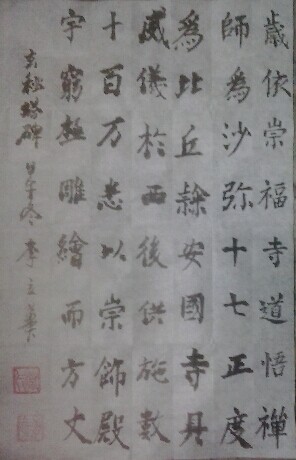 歲依崇福寺道悟禪
師為沙弥十七正度
為比丘隸安國寺丹
威儀於西後供施數
十百万悉以崇飾殿
宇窮極雕繪而方丈
玄秘塔碑 甲午冬 李